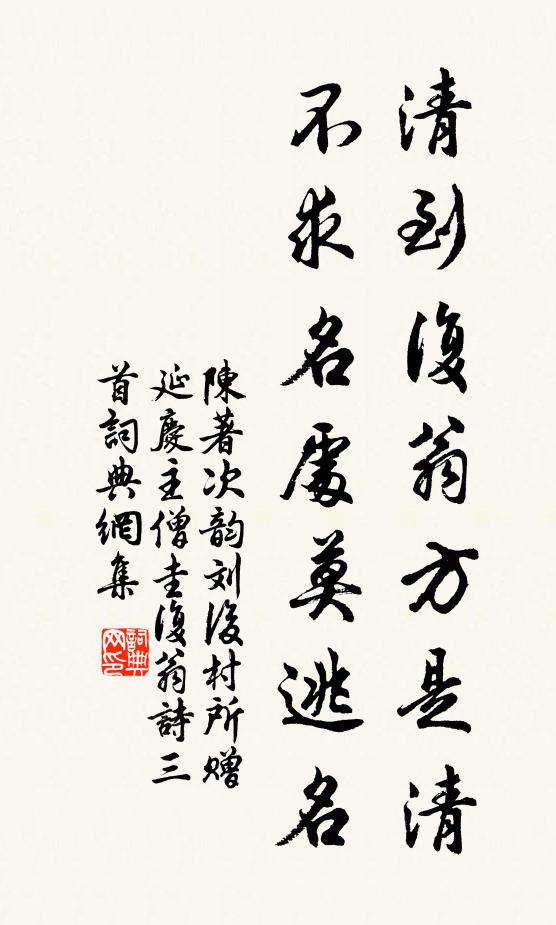 清到復翁方是清
不求名處莫逃名
陳著次韵刘後村所赠
延慶主僧圭復翁詩三
首詞典網集
詞典
网印